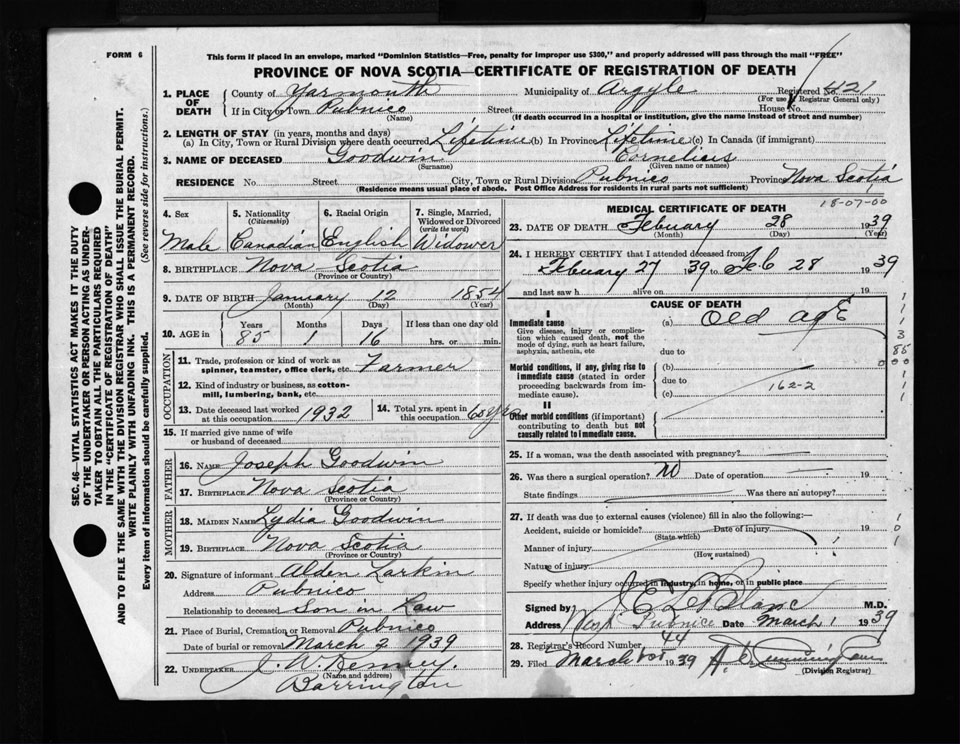 FORM 6
This form if placed in an envelope, marked "Dominion Statistics—Free, penalty for improper use $300," and properly addressed will pass through the mail "FREE"
PROVINCE OF NOVA SCOTIA—CERTIFICATE OF REGISTRATION OF DEATH
SEC. 46—VITAL STATISTICS ACT MAKES IT THE DUTY
OF THE UNDERTAKER OR PERSON ACTING AS UNDER-
TAKER TO OBTAIN ALL THE PARTICULARS REQUIRED
IN THE "CERTIFICATE OF REGISTRATION OF DEATH"
AND TO FILE THE SAME WITH THE DIVISION REGISTRAR WHO SHALL ISSUE THE BURIAL PERMIT.
WRITE PLAINLY WITH UNFADING INK. THIS IS A PERMANENT RECORD.
Every item of information should be carefully supplied. (See reverse side for instructions.)
1. PLACE OF DEATH
County of Yarmouth Municipality of Argyle Registered No. 421
(For use of Registrar General only)
If in City or Town Pubnico Street House No.
(Name) (If death occurred in a hospital or institution, give the name instead of street and number)
2. LENGTH OF STAY (in years, months and days)
(a) In City, Town or Rural Division where death occurred Lifetime (b) In Province Lifetime (c) In Canada (if immigrant)
3. NAME OF DECEASED Goodwin Cornelious
(Surname) (Given name or names)
RESIDENCE No. Street City, Town or Rural Division Pubnico Province Nova Scotia
(Residence means usual place of abode. Post Office Address for residents in rural parts not sufficient)
18-07-00
4. Sex Male
5. Nationality (Citizenship) Canadian
6. Racial Origin English
7. Single, Married, Widowed or Divorced (write the word) Widower
8. BIRTHPLACE Nova Scotia
(Province or Country)
9. DATE OF BIRTH January 12 1854
(Month) (Day) (Year)
10. AGE in Years Months Days If less than one day old
85 1 16 hrs. or min.
OCCUPATION
11. Trade, profession or kind of work as spinner, teamster, office clerk, etc. Farmer
12. Kind of industry or business, as cotton-mill, lumbering, bank, etc.
13. Date deceased last worked at this occupation 1932
14. Total yrs. spent in this occupation 60 yrs
15. If married give name of wife or husband of deceased
FATHER
16. NAME Joseph Goodwin
17. BIRTHPLACE Nova Scotia
(Province or Country)
MOTHER
18. MAIDEN NAME Lydia Goodwin
19. BIRTHPLACE Nova Scotia
(Province or Country)
20. Signature of informant Alden Larkin
Address Pubnico
Relationship to deceased Son in Law
21. Place of Burial, Cremation or Removal Pubnico
Date of burial or removal March 2 1939
22. UNDERTAKER J. W.
(Name and address)
Barrington
MEDICAL CERTIFICATE OF DEATH
23. DATE OF DEATH Febuary 28 1939
(Month) (Day) (Year)
24. I HEREBY CERTIFY that I attended deceased from
Febuary 27 1939 to Feb 28 1939
and last saw h alive on 19
CAUSE OF DEATH
I
Immediate cause (a) Old age
Give disease, injury or complication which caused death, not the mode of dying, such as heart failure, asphyxia, asthenia, etc
due to
Morbid conditions, if any, giving rise to immediate cause (stated in order proceeding backwards from immediate cause).
(b)
due to
(c) 162-2
II
Other morbid conditions (if important) contributing to death but not causally related to immediate cause.
1
1
1
3
85
00
1
1
1
25. If a woman, was the death associated with pregnancy?
26. Was there a surgical operation? No Date of operation 19
State findings Was there an autopsy?
27. If death was due to external causes (violence) fill in also the following:—
Accident, suicide or homicide? Date of injury 19
(State which)
Manner of injury
(How sustained)
Nature of injury
Specify whether injury occurred in industry, in home, or in public place
1
0
1
Signed by J E LeBlanc M.D.
Address West Pubnico Date March 1 1939
28. Registrar's Record Number 44
29. Filed March 1st 1939
(Division Registrar)